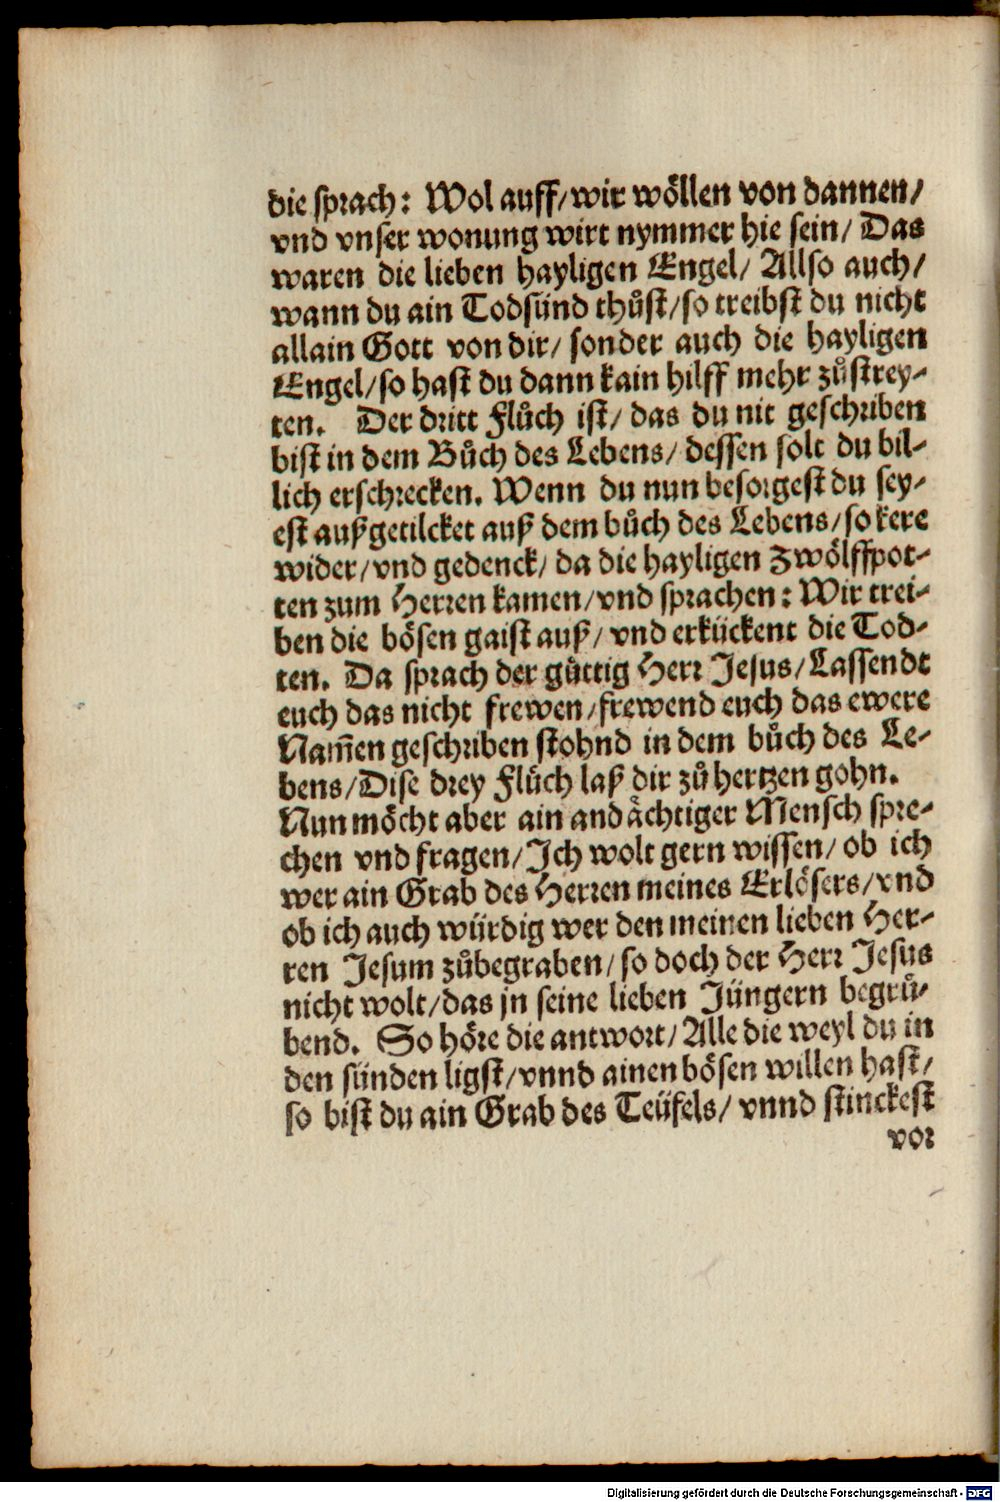 die sprach: Wol auff/ wir wöllen von dannen/
vnd vnser wonung wirt nymmer hie sein/ Das
waren die lieben hayligen Engel/ Allso auch/
wann du ain Todsünd thůst/ so treibst du nicht
allain Gott von dir/ sonder auch die hayligen
Engel/ so hast du dann kain hilff mehr zůstrey-
ten. Der dritt Flůch ist/ das du nit geschriben
bist in dem Bůch des Lebens/ dessen solt du bil-
lich erschrecken. Wenn du nun besorgest du sey-
est außgetilcket auß dem bůch des Lebens/ so kere
wider/ vnd gedenck/ da die hayligen Zwölffpot-
ten zum Herren kamen/ vnd sprachen: Wir trei-
ben die bösen gaist auß/ vnd erkückent die Tod-
ten. Da sprach der güttig Herr Jesus/ Lassendt
euch das nicht frewen/ frewend euch das ewere
Nam̃en geschriben stohnd in dem bůch des Le-
bens/ Dise drey Flůch laß dir zů hertzen gohn.
Nun möcht aber ain andächtiger Mensch spre-
chen vnd fragen/ Ich wolt gern wissen/ ob ich
wer ain Grab des Herren meines Erlösers/ vnd
ob ich auch würdig wer den meinen lieben Her-
ren Jesum zůbegraben/ so doch der Herr Jesus
nicht wolt/ das jn seine lieben Jüngern begrů-
bend. So höre die antwort/ Alle die weyl du in
den sünden ligst/ vnnd ainen bösen willen hast/
so bist du ain Grab des Teüfels/ vnnd stinckest
vor
Digitalisierung gefördert durch die Deutsche Forschungsgemeinschaft - DFG